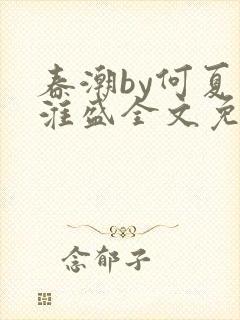 春潮by何夏
淮盛全文免
念郁子